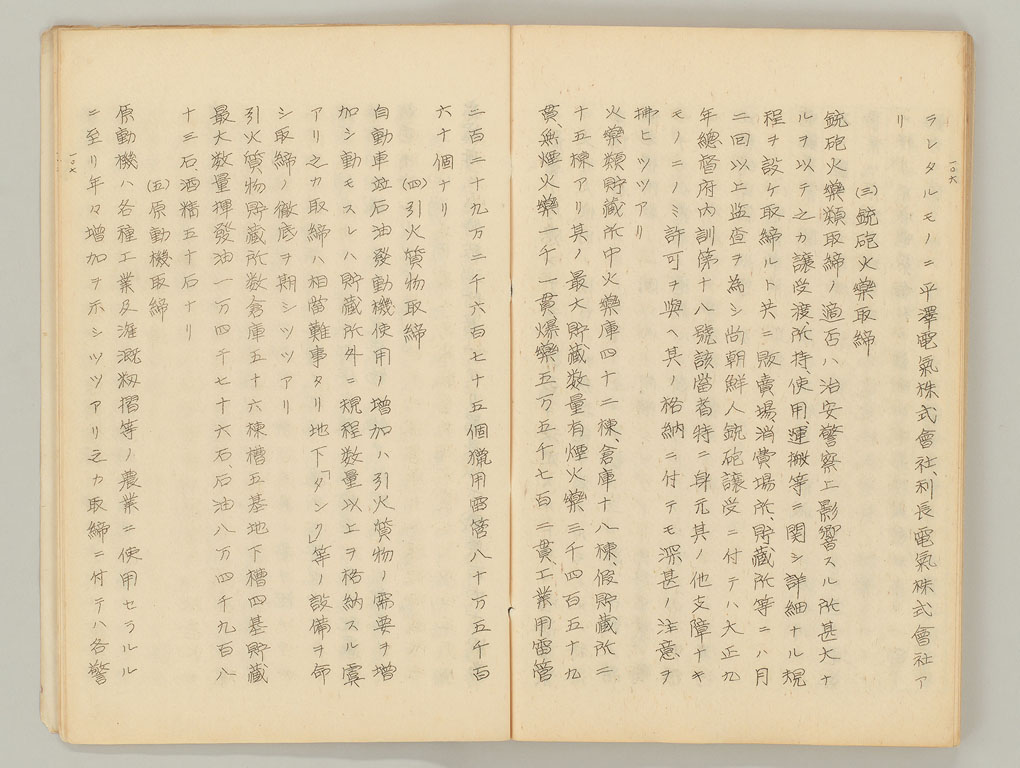 一〇六
ラレタルモノニ平澤電氣株式會社、利長電氣株式會社ア
リ
(三)銃砲火藥取締
銃砲火藥類取締ノ適否ハ治安警察上影響スル所甚大ナ
ルヲ以テ之カ讓受渡、所持、使用、運搬等ニ関シ詳細ナル規
程ヲ設ケ取締ルト共ニ販賣場、消費場所、貯藏所等ニハ月
二回以上監査ヲ為シ尚朝鮮人銃砲讓受ニ付テハ大正九
年總督府内訓第十八號該當者特ニ身元其ノ他支障ナキ
モノニノミ許可ヲ與ヘ其ノ格納ニ付テモ深甚ノ注意ヲ
拂ヒツツアリ
火藥類貯藏所中火藥庫四十二棟、倉庫十八棟、假貯藏所二
十五棟アリ其ノ最大貯藏数量有煙火藥三千四百五十九
貫、無煙火藥一千一貫、爆藥五万五千七百二貫、工業用雷管
三百二十九万三千六百七十五個、獵用雷管八十万五千百
六十個ナリ
(四)引火質物取締
自動車並石油發動機使用ノ增加ハ引火質物ノ需要ヲ增
加シ動モスレハ貯藏所外ニ規程数量以上ヲ格納スル虞
アリ之カ取締ハ相當難事タリ地下「タンク」等ノ設備ヲ命
シ取締ノ徹底ヲ期シツツアリ
引火質物貯藏所数倉庫五十六棟槽五基地下槽四基貯藏
最大数量揮發油一万四千七十六石、石油八万四千九百八
十三石、酒精五十石ナリ
(五)原動機取締
原動機ハ各種工業及灌漑籾摺等ノ農業ニ使用セラルル
ニ至リ年々增加ヲ示シツツアリ之カ取締ニ付テハ各警
一〇七